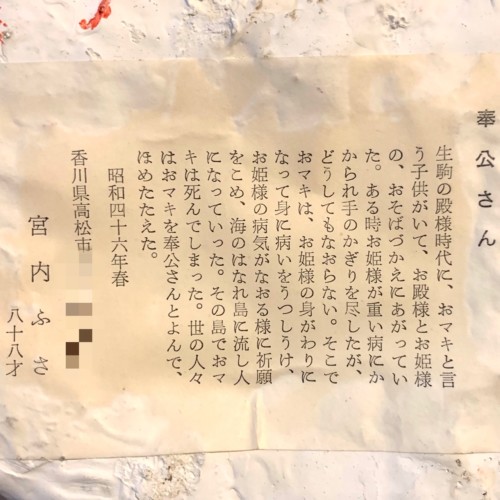 奉公さん
生駒の殿様時代に、おマキと言
う子供がいて、お殿様とお姫様
の、おそばづかえにあがってい
た。ある時お姫様が重い病にか
かられ手のかぎりを尽したが、
どうしてもなおらない。そこで
おマキは、お姫様の身がわりに
なって身に病いをうつしうけ、
お姫様の病気がなおる様に祈願
をこめ、海のはなれ島に流し人
になっていった。その島でおマ
キは死んでしまった。世の人々
はおマキを奉公さんとよんで、
ほめたたえた。
昭和四十六年春
香川県高松市
宮内ふさ
八十八才